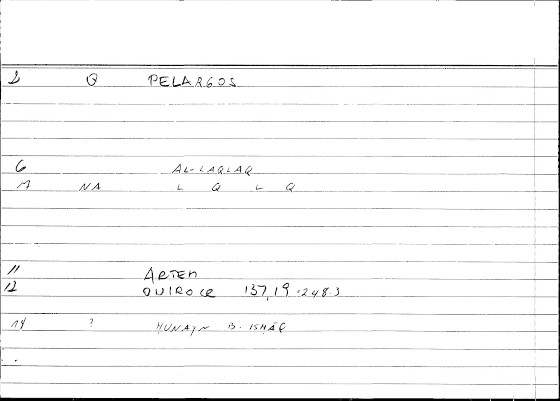 1 Q PELARGOS
6 AL-LAQLAQ
M NA L Q L Q
11 ARTEM
12 QUIROCR 137,19-248.3
14 ? HUNAYN B. ISHĀQ